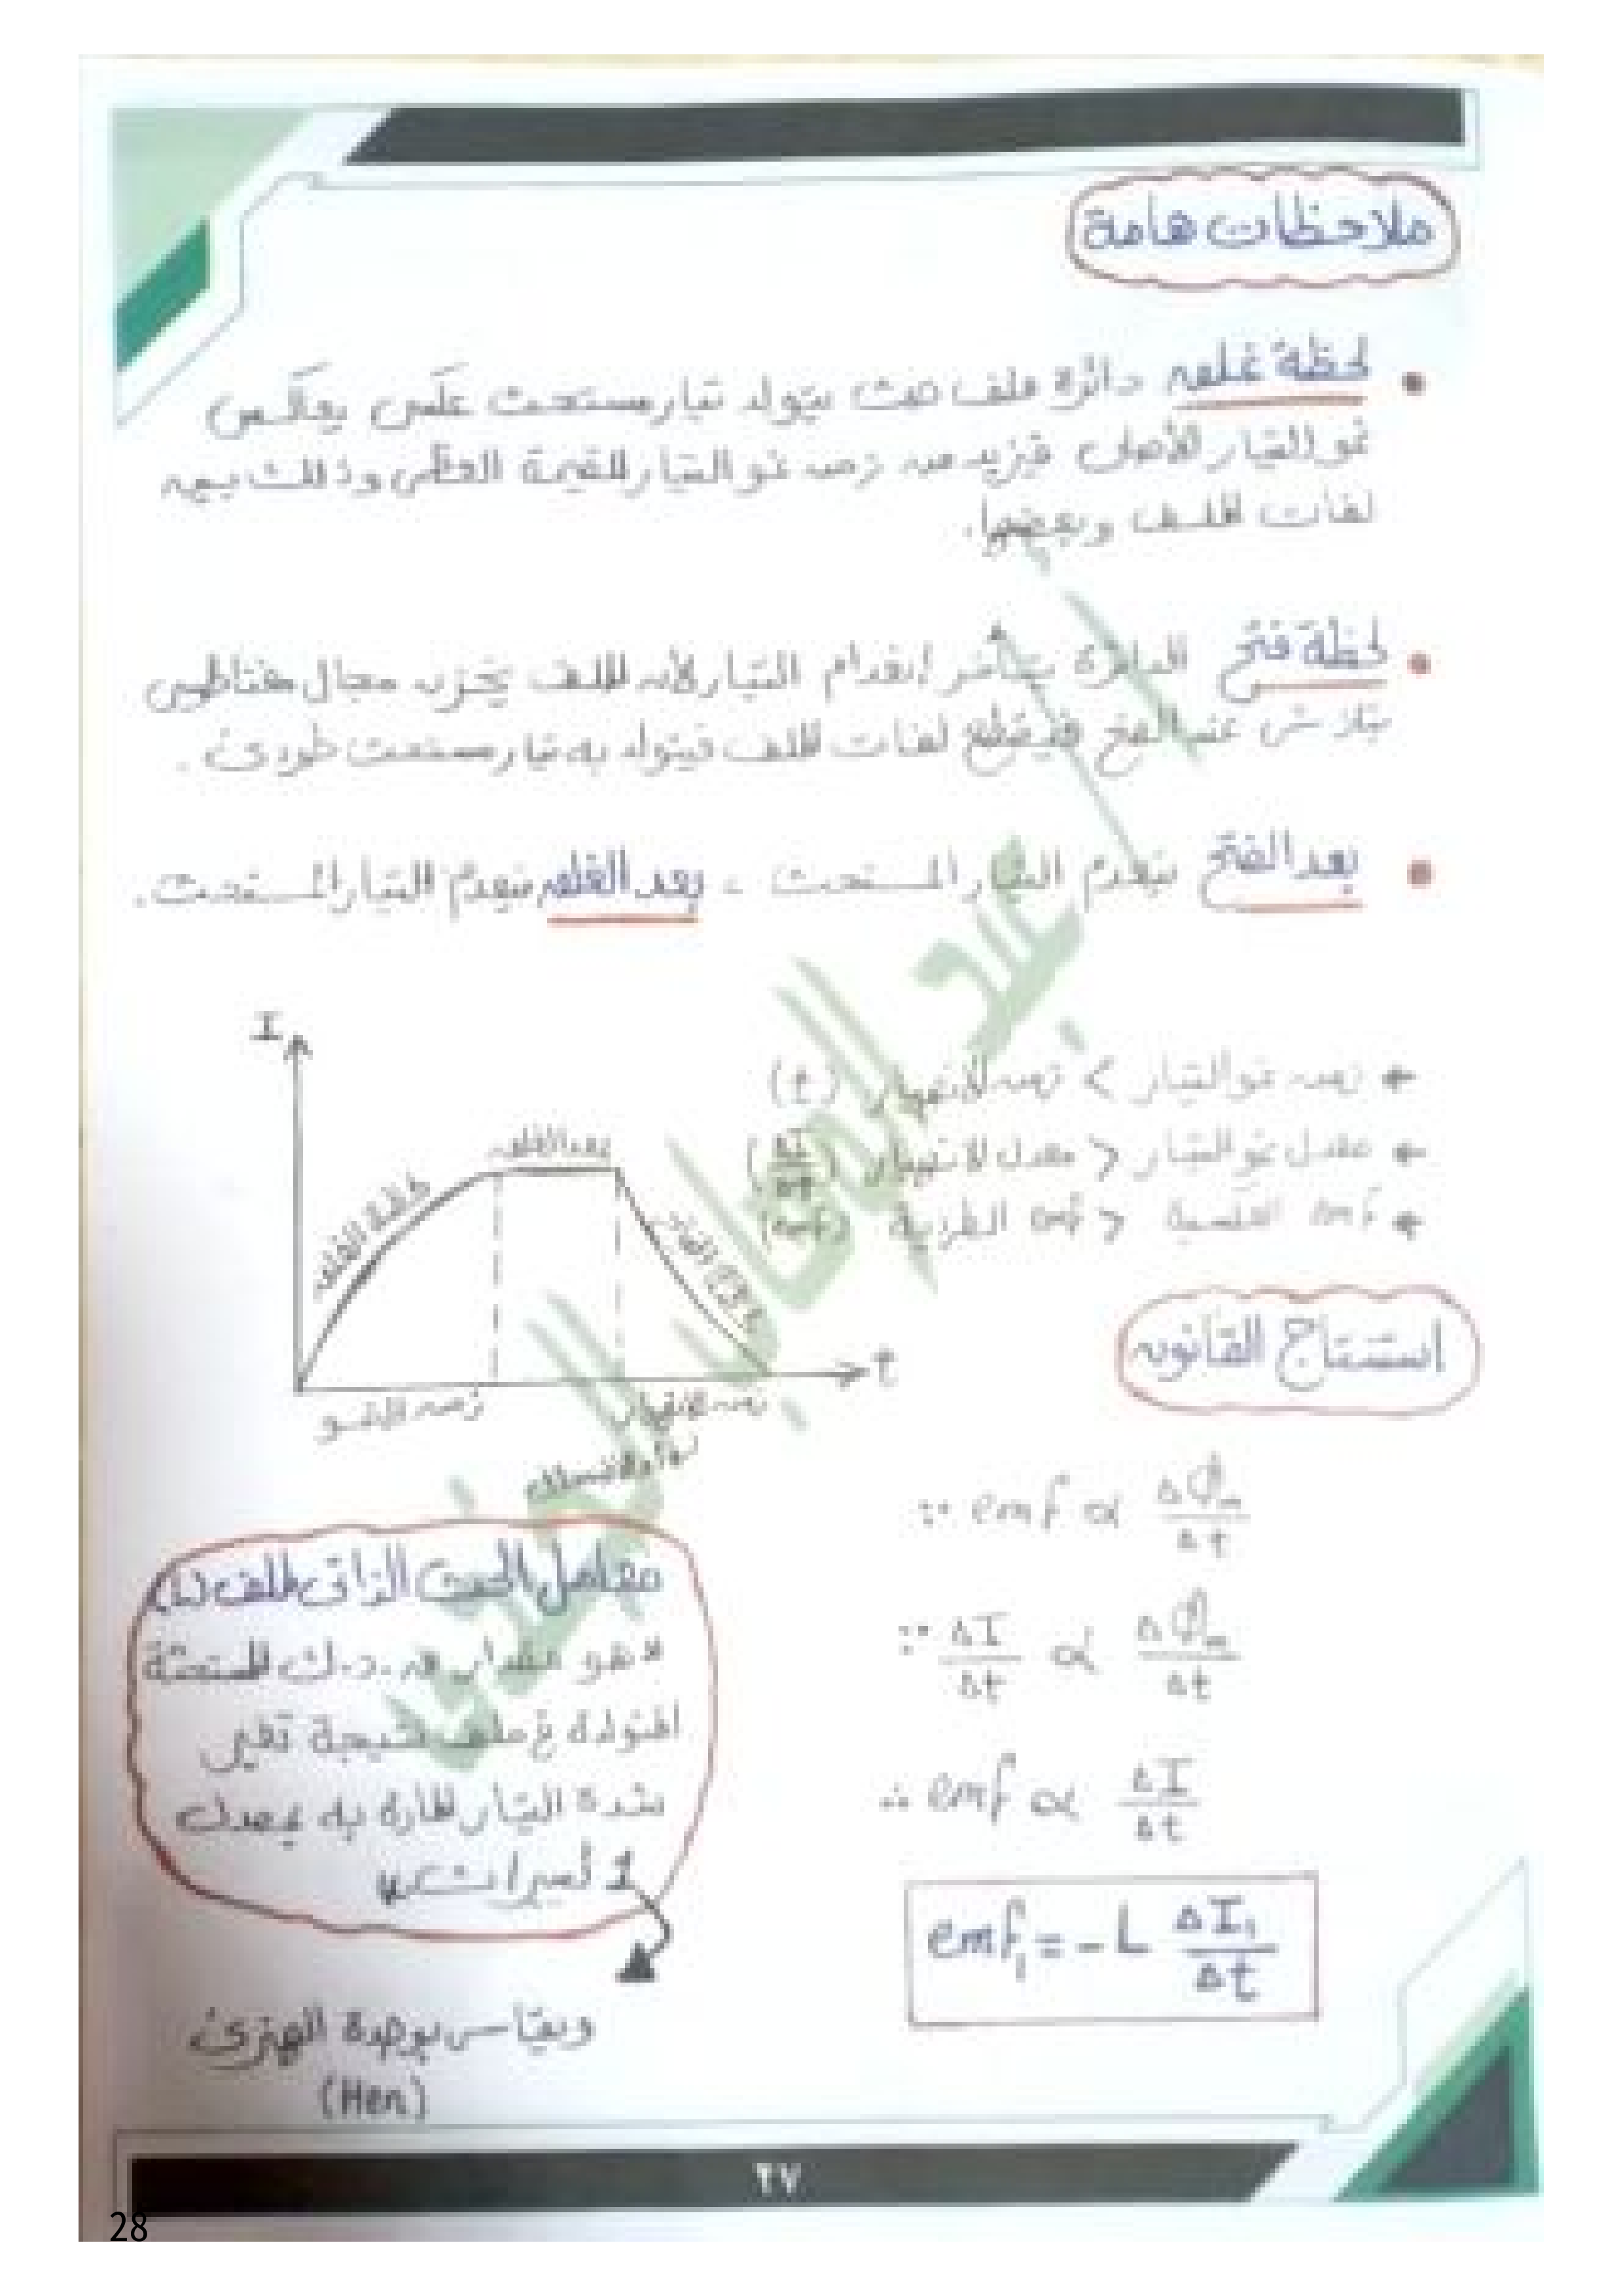 ملاحظات هامة
لحظة غلق دائرة ملف حث يتولد تيار مستحث عكسى يعاكس
نمو التيار الأصلى فيزيد من زمن نمو التيار للقيمة العظمى وذلك بين
لفات الملف وبعضها.
لحظة فتح الدائرة يتأخر إنعدام التيار لأن الملف يختزن مجال مغناطيسى
يتلاشى عند الفتح فيقطع لفات الملف فيتولد به تيار مستحث طردى.
بعد الفتح ينعدم التيار المستحث - بعد الغلق ينعدم التيار المستحث.
زمن نمو التيار > زمن الانهيار (t)
معدل نمو التيار < معدل الانهيار (ΔI/Δt)
emf العكسية < emf الطردية (emf)
I
بعد الغلق
لحظة الغلق
t
زمن النمو
زمن الانهيار
استنتاج القانون
∵ emf ∝ Δφm/Δt
∵ ΔI/Δt ∝ Δφm/Δt
∴ emf ∝ ΔI/Δt
emf₁ = - L ΔI₁/Δt
معامل الحث الذاتى للملف (L)
هو مقدار ق.د.ك المستحثة
المتولدة فى ملف نتيجة تغير
شدة التيار المارة به بمعدل
1 أمبير/ث
ويقاس بوحدة الهنرى
(Hen)
٢٧
28
عبد الوهاب